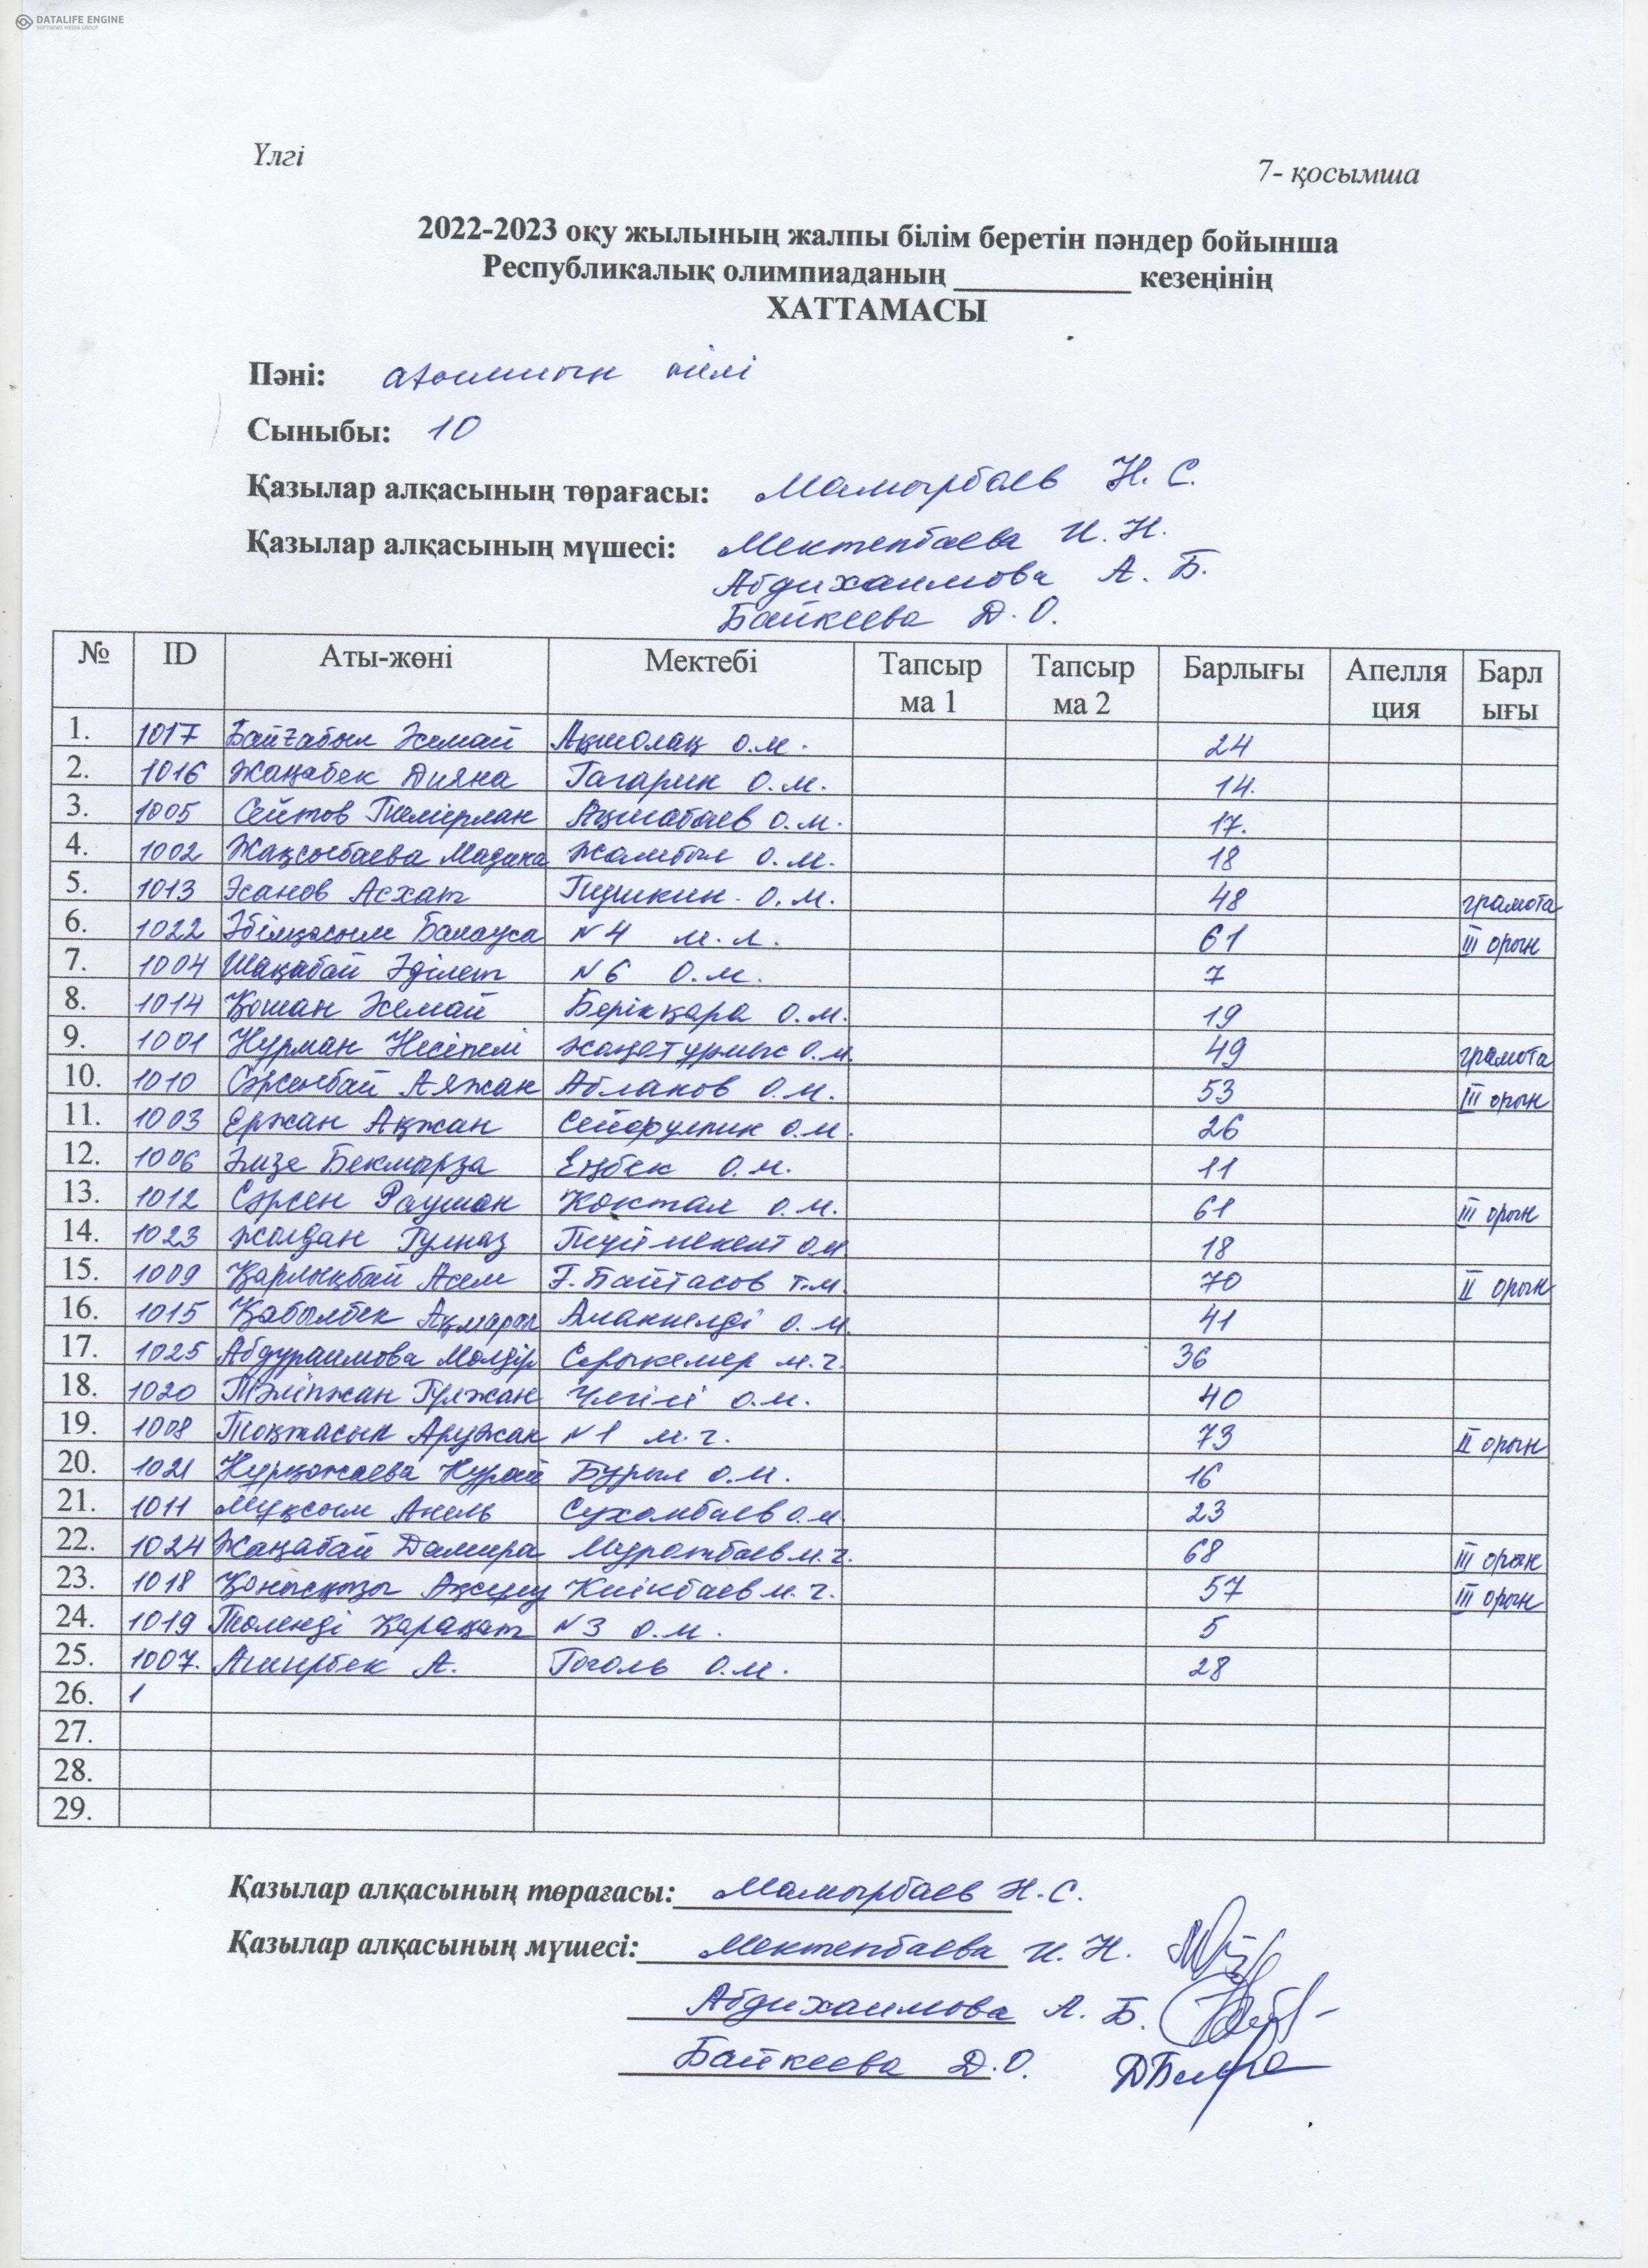 DATALIFE ENGINE
SOFTNEWS MEDIA GROUP
Үлгі
7- қосымша
2022-2023 оқу жылының жалпы білім беретін пәндер бойынша
Республикалық олимпиаданың ___________ кезеңінің
ХАТТАМАСЫ
Пәні: ағылшын тілі
Сыныбы: 10
Қазылар алқасының төрағасы: Мамырбаев Н. С.
Қазылар алқасының мүшесі: Мектепбаева И. Н.
Абдихаимова А. Б.
Байкеева Д. О.
№ ID Аты-жөні Мектебі Тапсыр ма 1 Тапсыр ма 2 Барлығы Апелля ция Барл ығы
1. 1017 Байғабыл Жемай Ақшолақ о.м. 24
2. 1016 Жаңабек Дияна Гагарин о.м. 14.
3. 1005 Сейтов Темірлан Ақшабаев о.м. 17.
4. 1002 Жақсыбаева Мадина Жамбыл о.м. 18
5. 1013 Жанов Асхат Пушкин о.м. 48 грамота
6. 1022 Әбілқасым Балауса №4 м.л. 61 III орын
7. 1004 Шақабай Әділет №6 о.м. 7
8. 1014 Қошан Жемай Беріққара о.м. 19
9. 1001 Нұрман Несіпелі Жаңатұрмыс о.м. 49 грамота
10. 1010 Сәрсенбай Аяжан Абланов о.м. 53 III орын
11. 1003 Ержан Ақжан Сейфуллин о.м. 26
12. 1006 Бекмырза Еңбек о.м. 11
13. 1012 Сәрсен Раушан Коктал о.м. 61 III орын
14. 1023 Жолдан Гүлназ Түймекент о.м. 18
15. 1009 Қарлықбай Асем Ғ. Байтасов т.м. 70 II орын
16. 1015 Қабылбек Ақмарал Аманкелді о.м. 41
17. 1025 Абдураимова Мөлдір Сарыкемер м.г. 36
18. 1020 Тәліпжан Гүлжан Үлгілі о.м. 40
19. 1008 Тоқтасын Аружан №1 м.г. 73 II орын
20. 1021 Нұрқожаева Нұрай Бурыл о.м. 16
21. 1011 Мұқсым Анель Сухамбаев о.м. 23
22. 1024 Жаңабай Дамира Муратбаев м.г. 68 III орын
23. 1018 Қонысқызы Ақсұлу Киікбаев м.г. 57 III орын
24. 1019 Төленді Қарақат №3 о.м. 5
25. 1007. Амирбек А. Гоголь о.м. 28
26. 1
27.
28.
29.
Қазылар алқасының төрағасы: Мамырбаев Н. С.
Қазылар алқасының мүшесі: Мектепбаева И. Н.
Абдихаимова А. Б.
Байкеева Д. О.